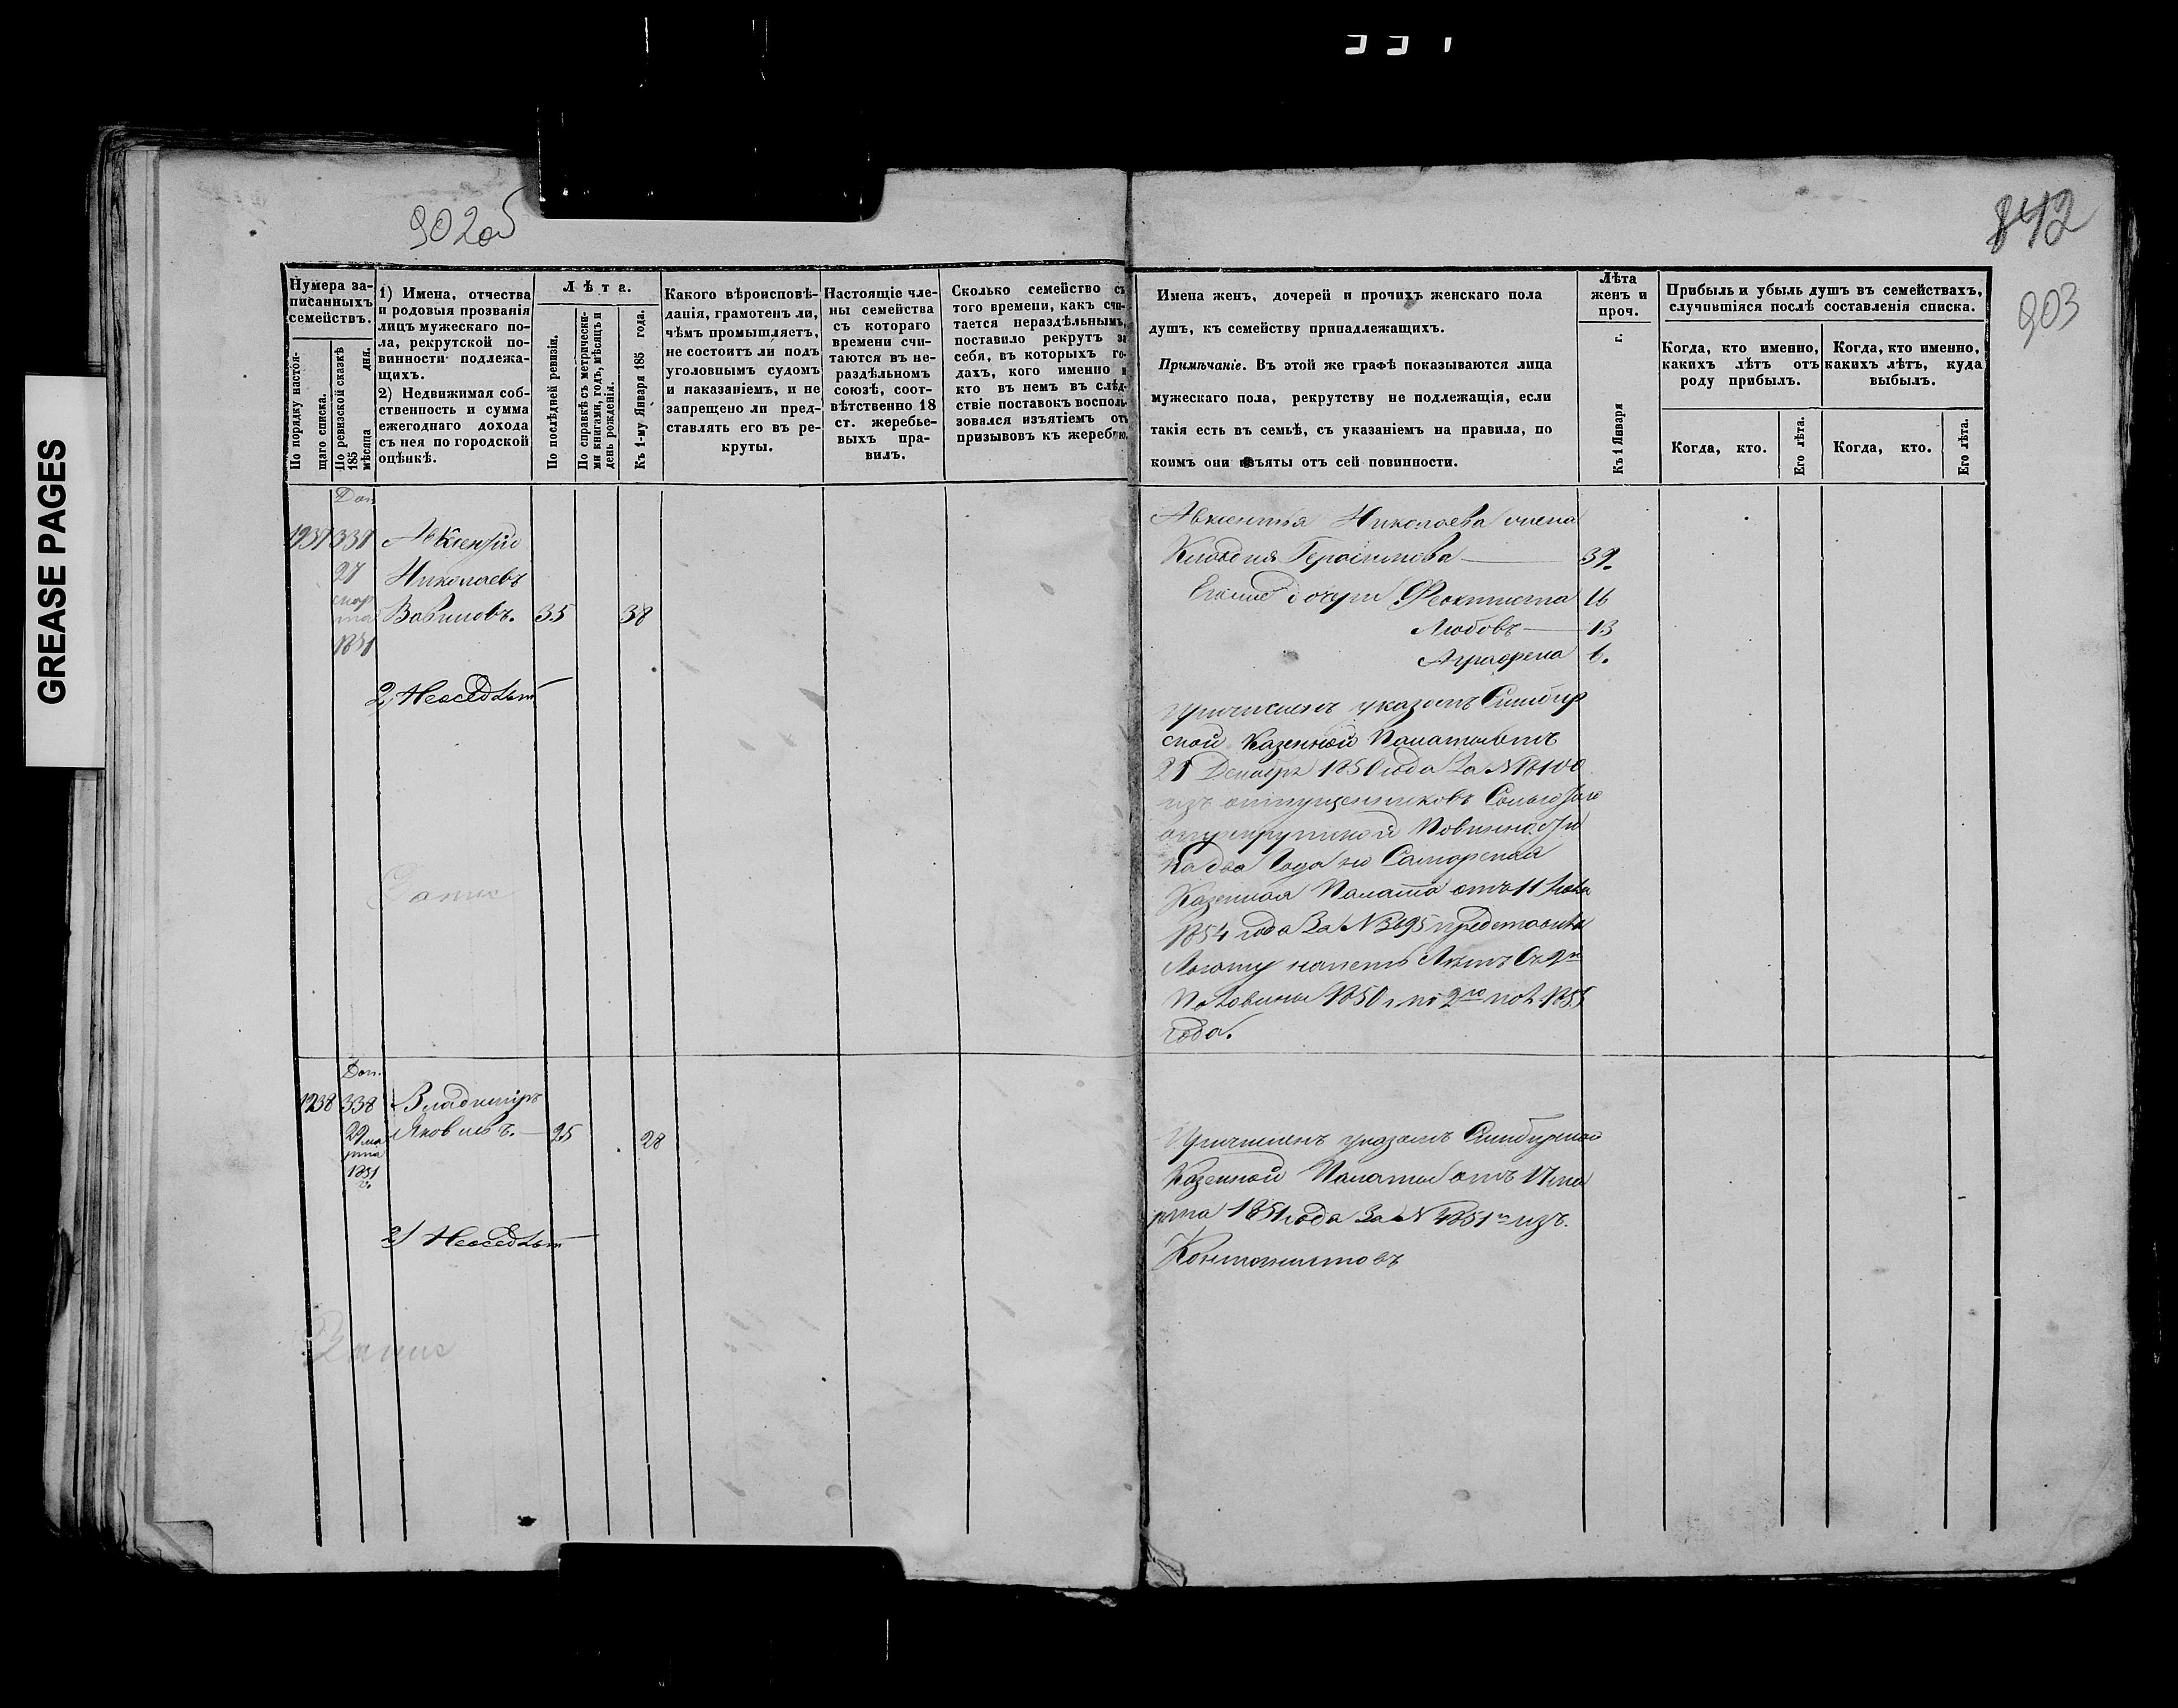 GREASE PAGES
902об
842
903
Нумера за-
писанныхъ
семействъ.
По порядку настоя-
щаго списка.
По ревизской сказкѣ
185 дня.
мѣсяца
1) Имена, отчества
и родовыя прозванія
лицъ мужескаго по-
ла, рекрутской по-
винности подлежа-
щихъ.
2) Недвижимая соб-
ственность и сумма
ежегоднаго дохода
съ нея по городской
оцѣнкѣ.
Лѣта.
По послѣдней ревизіи.
По справкѣ съ метрически-
ми книгами, годъ, мѣсяцъ и
день рожденія.
Къ 1-му Января 185 года.
Какого вѣроисповѣ-
данія, грамотенъ ли,
чѣмъ промышляетъ,
не состоитъ ли подъ
уголовнымъ судомъ
и наказаніемъ, и не
запрещено ли пред-
ставлять его въ ре-
круты.
Настоящіе чле-
ны семейства
съ котораго
времени счи-
таются въ не-
раздѣльномъ
союзѣ, соот-
вѣтственно 18
ст. жеребье-
выхъ пра-
вилъ.
Сколько семейство съ
того времени, какъ счи-
тается нераздѣльнымъ,
поставило рекрутъ за
себя, въ которыхъ го-
дахъ, кого именно и
кто въ немъ въ слѣд-
ствіе поставокъ восполь-
зовался изъятіемъ отъ
призывовъ къ жеребью.
Имена женъ, дочерей и прочихъ женскаго пола
душъ, къ семейству принадлежащихъ.
Примѣчаніе. Въ этой же графѣ показываются лица
мужескаго пола, рекрутству не подлежащія, если
такія есть въ семьѣ, съ указаніемъ на правила, по
коимъ они изъяты отъ сей повинности.
Лѣта
женъ и
проч.
Къ 1 Января г.
Прибыль и убыль душъ въ семействахъ,
случившіяся послѣ составленія списка.
Когда, кто именно,
какихъ лѣтъ отъ
роду прибылъ.
Когда, кто именно,
какихъ лѣтъ, куда
выбылъ.
Когда, кто.
Его лѣта.
Когда, кто.
Его лѣта.
Доп.
1237 337 Авксентій
27 Николаевъ
мар
та Вавиловъ. 35 38
1851
2) Неосѣдлый
Авксентья Николаева жена
Клавдия Герасимова 39.
Его же дочери Феоктиста 16
Любовь 13
Аграфена 6.
Причисленъ указомъ Симбир
ской Казенной Палаты отъ
Декабря 1850 года за №
изъ отпущенниковъ
Повинности
на два года но Самарская
Казенная Палата отъ 11
1854 года за № 3695 представила
Льготу на Лѣтъ съ 2й
Половины 1850 г. по 2ю пол. 1855
года.
Доп.
1238 338 Владиміръ
29 ма Яковлевъ. 25 28
рта
1851
г.
2) Неосѣдлый
Причисленъ указомъ Симбирской
Казенной Палаты отъ 17 ма
рта 1851 года за № 4851м изъ
Кантонистовъ